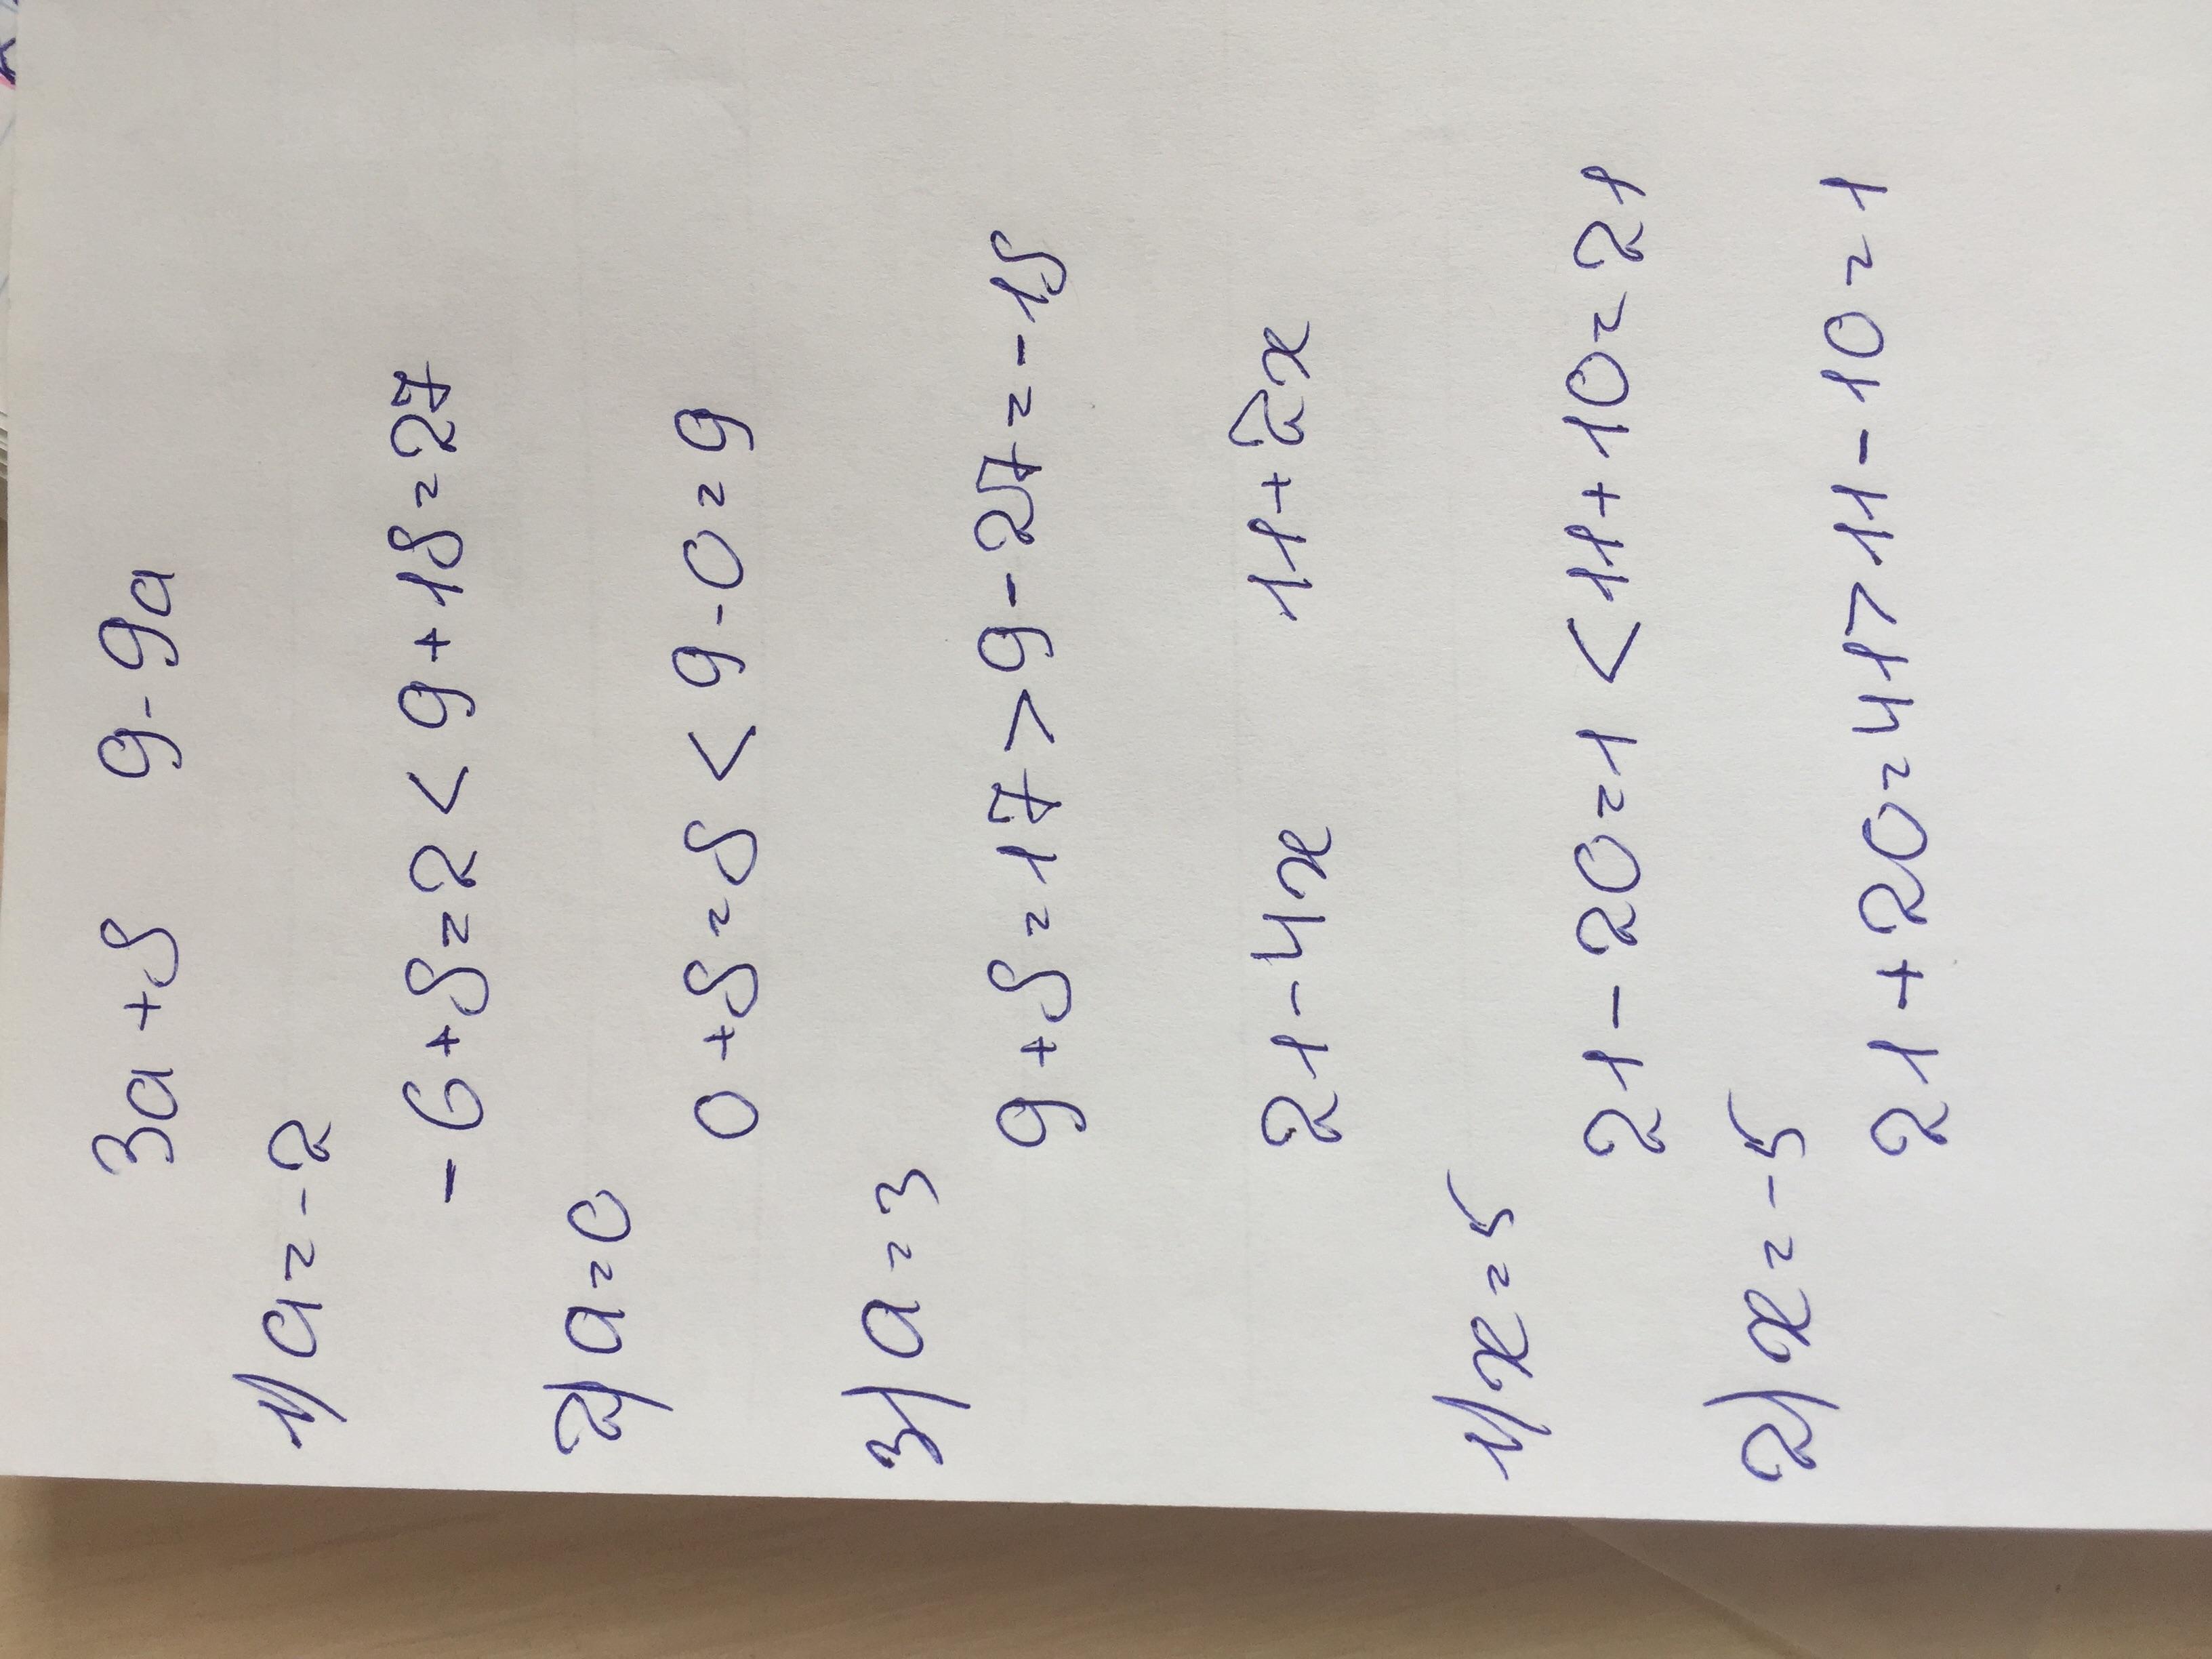 3a+8 9-9a
1) a=-2
-6+8=2<9+18=27
2) a=0
0+8=8<9-0=9
3) a=3
9+8=17>9-27=-18
21-4x 11+2x
1) x=5
21-20=1<11+10=21
2) x=-5
21+20=41>11-10=1